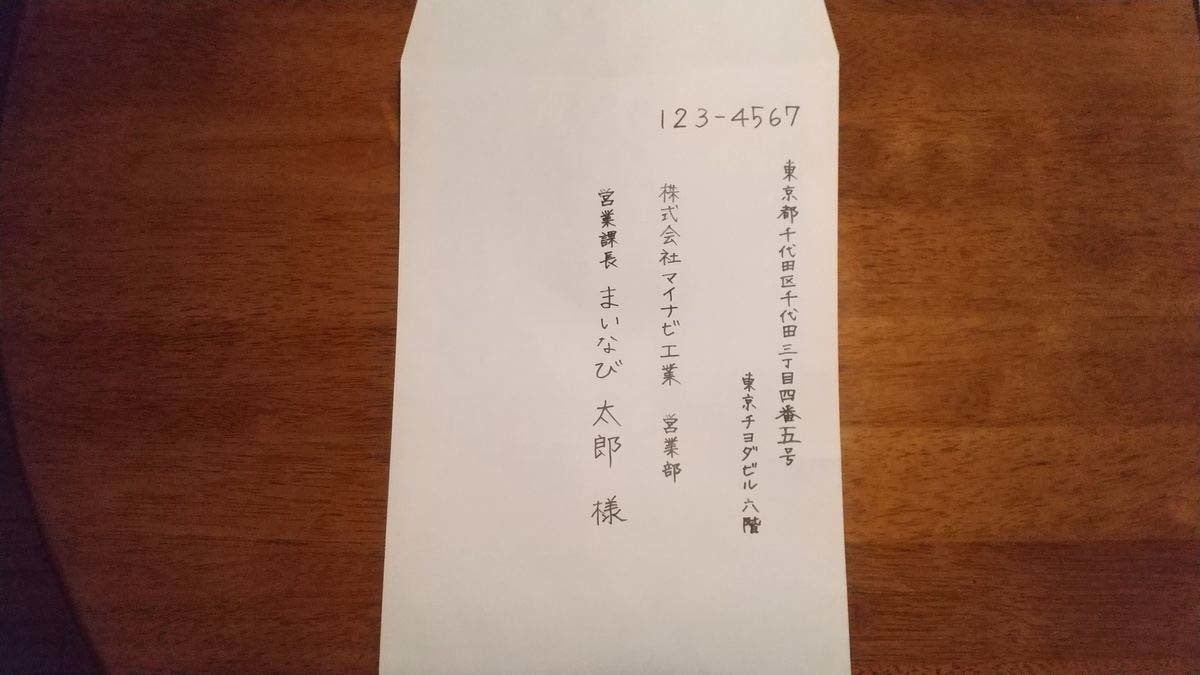 123-4567
東京都千代田区千代田三丁目四番五号
東京チヨダビル六階
株式会社マイナビ工業 営業部
営業課長 まいなび 太郎 様